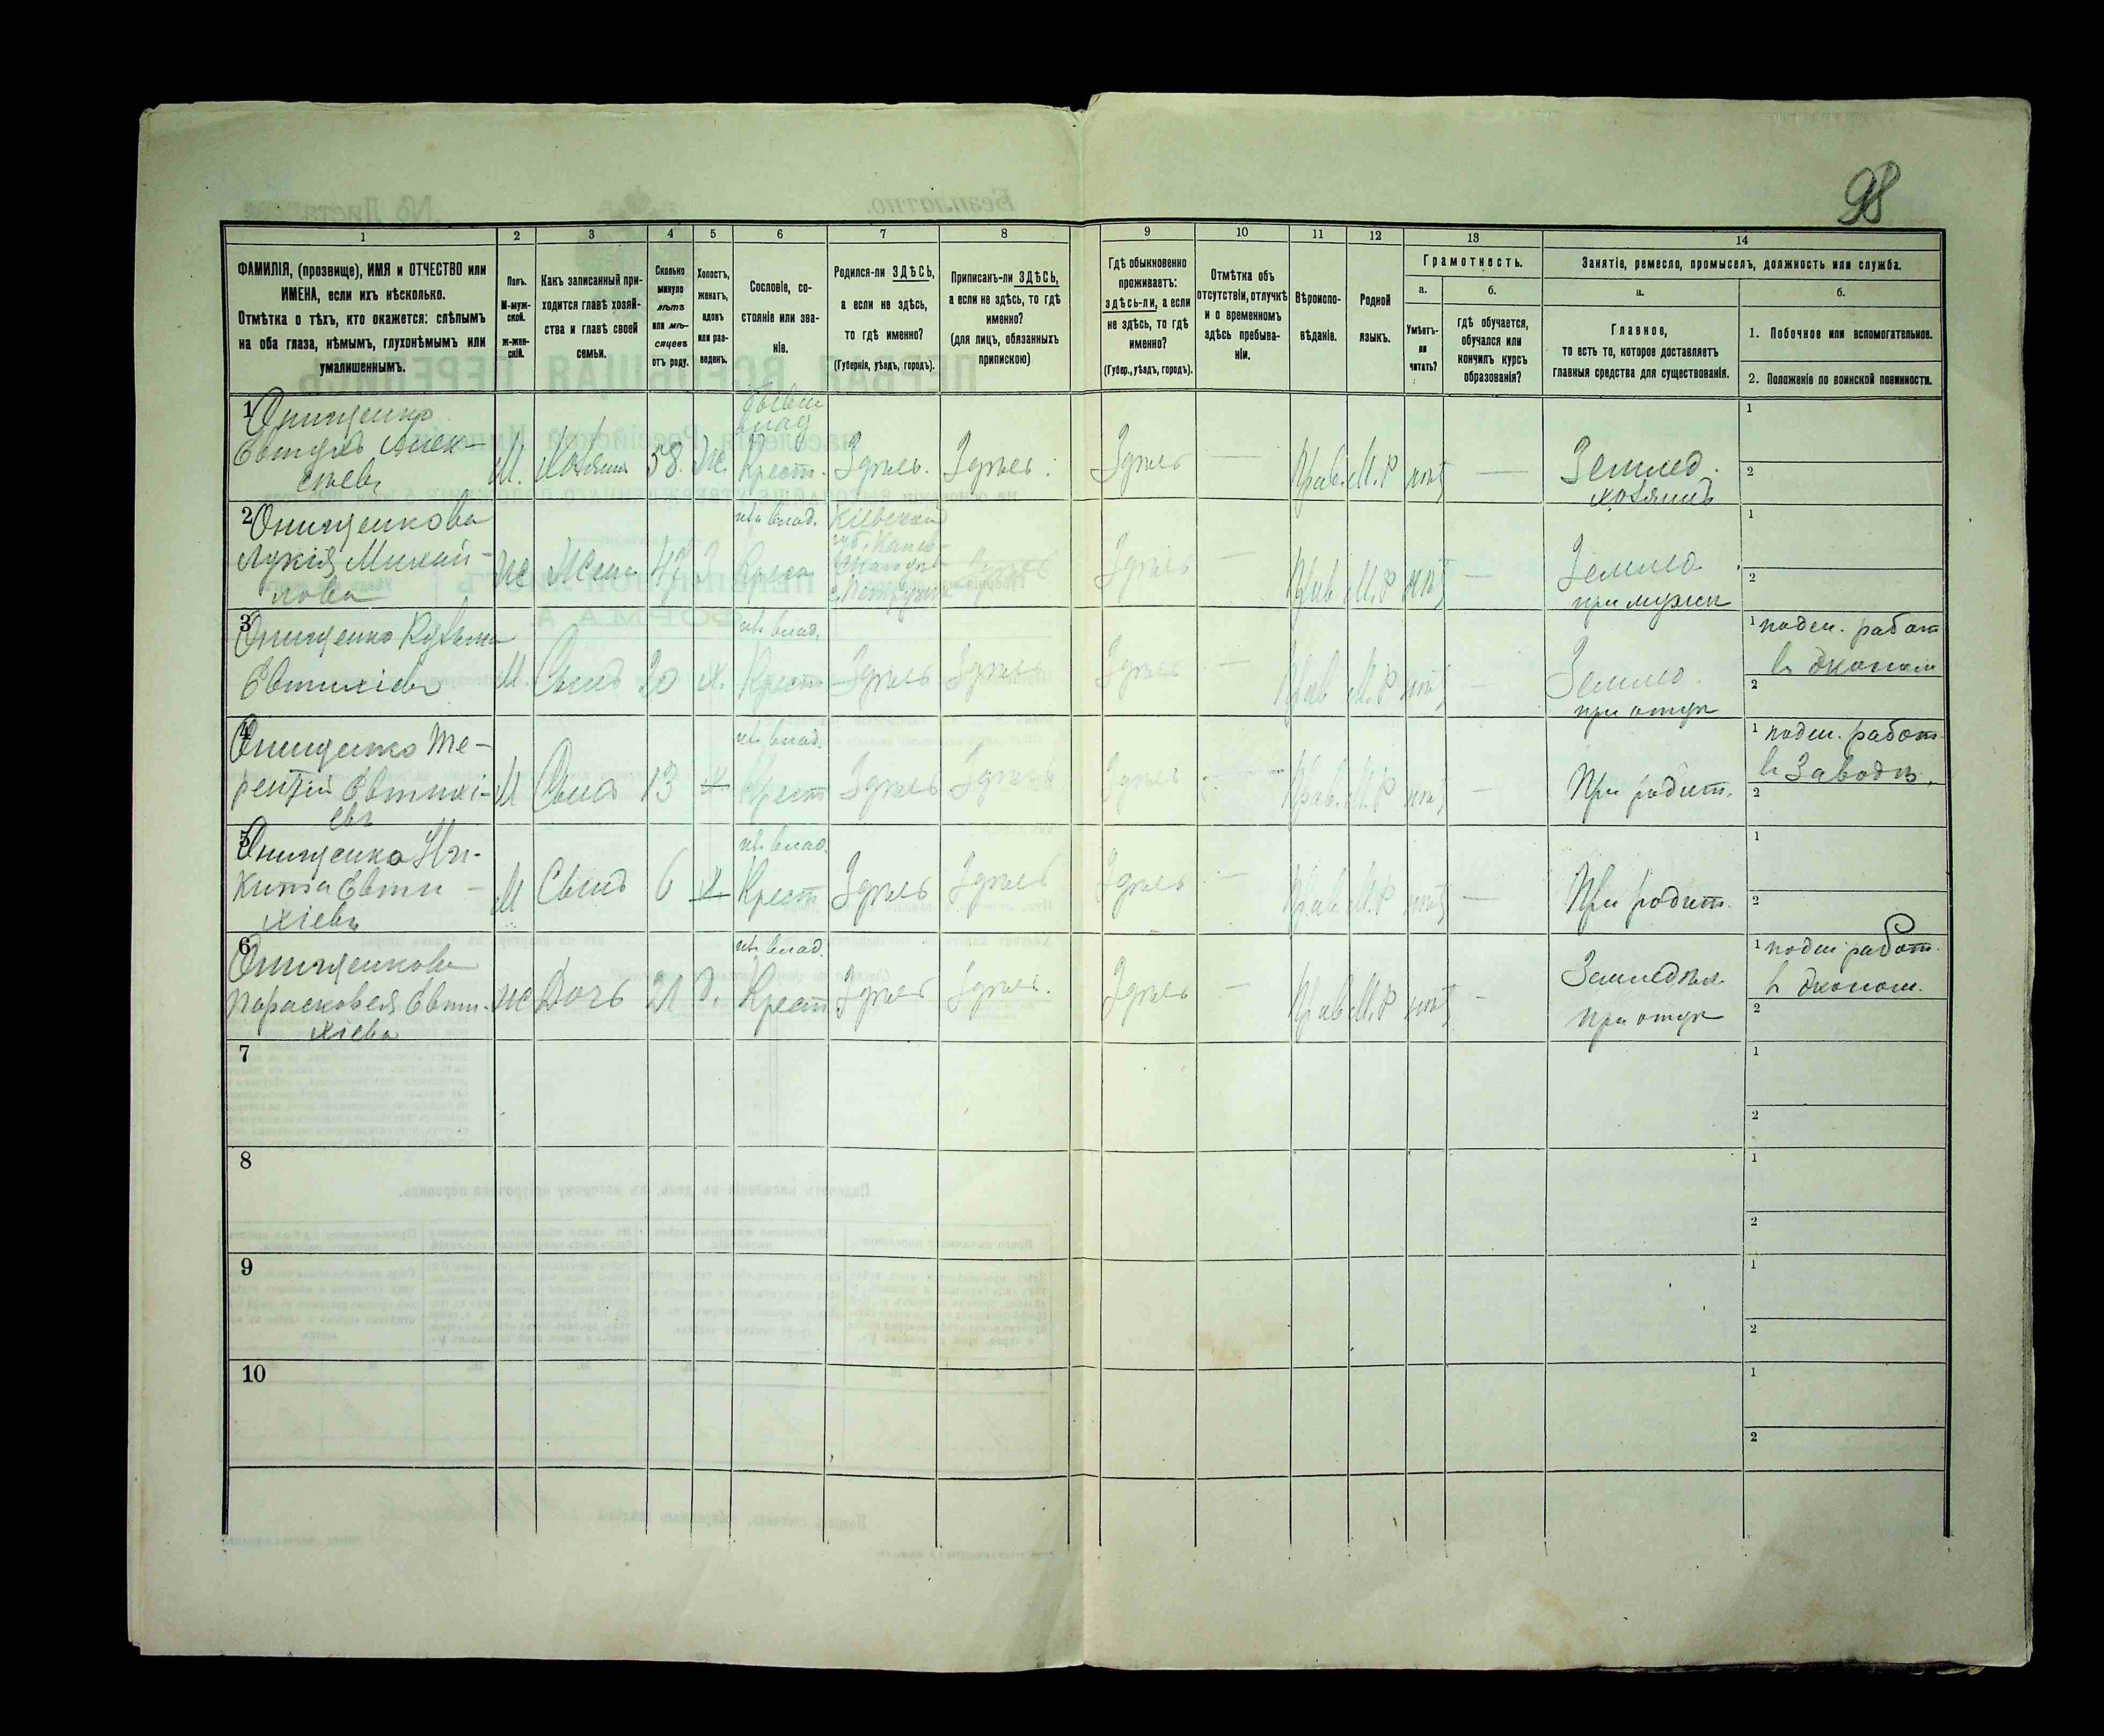 98
1
2
3
4
5
6
7
8
9
10
11
12
13
14
ФАМИЛІЯ, (прозвище), ИМЯ и ОТЧЕСТВО или
ИМЕНА, если ихъ нѣсколько.
Отмѣтка о тѣхъ, кто окажется: слѣпымъ
на оба глаза, нѣмымъ, глухонѣмымъ или
умалишеннымъ.
Полъ.
М-муж-
ской.
ж-жен-
скій.
Какъ записанный при-
ходится главѣ хозяй-
ства и главѣ своей
семьи.
Сколько
минуло
лѣтъ
или мѣ-
сяцевъ
отъ роду.
Холостъ,
женатъ,
вдовъ
или раз-
веденъ.
Сословіе, со-
стояніе или зва-
ніе.
Родился-ли ЗДѢСЬ,
а если не здѣсь,
то гдѣ именно?
(Губернія, уѣздъ, городъ).
Приписанъ-ли ЗДѢСЬ,
а если не здѣсь, то гдѣ
именно?
(для лицъ, обязанныхъ
припискою)
Гдѣ обыкновенно
проживаетъ:
здѣсь-ли, а если
не здѣсь, то гдѣ
именно?
(Губер., уѣздъ, городъ).
Отмѣтка объ
отсутствіи, отлучкѣ
и о временномъ
здѣсь пребыва-
ніи.
Вѣроиспо-
вѣданіе.
Родной
языкъ.
Грамотность.
а.
Умѣетъ-
ли
читать?
б.
гдѣ обучается,
обучался или
кончилъ курсъ
образованія?
Занятіе, ремесло, промыселъ, должность или служба.
а.
Главное,
то есть то, которое доставляетъ
главныя средства для существованія.
б.
1. Побочное или вспомогательное.
2. Положеніе по воинской повинности.
1 Онищенко
Евтухъ Алек-
сѣевъ
М. Хозяинъ 58. Ж.
бывш
влад
Крест. Здѣсь. Здѣсь. Здѣсь — Прав. М.Р нѣтъ —
Землед.
хозяинъ
1
2
2 Онищенкова
Лукія Михай-
лова
Ж Жена 47
влад.
Крест
Кіевской
губ. Канев-
Здѣсь — Прав М.Р нѣтъ —
Землед.
при мужѣ
1
2
3 Онищенко Кузьма
Евтихіевъ
М. Сынъ 20 х.
влад.
Крест Здѣсь Здѣсь Здѣсь — Прав М.Р нѣтъ —
Землед.
при отцѣ
1 поден. работ
въ эконом
2
4 Онищенко Те-
рентій Евтихі-
евъ
М Сынъ 13 х
влад.
Крест Здѣсь Здѣсь Здѣсь — Прав. М.Р нѣтъ —
При родит.
1 поден. работ
въ Заводѣ.
2
5 Онищенко Ни-
кита Евти-
хіевъ
М Сынъ 6 х
влад.
Крест Здѣсь Здѣсь Здѣсь — Прав М.Р нѣтъ —
При родит.
1
2
6 Онищенкова
Парасковея Евти-
хіева
Ж Дочь 21 д.
влад.
Крест Здѣсь Здѣсь. Здѣсь — Прав М.Р нѣтъ -
Земледѣл.
при отцѣ
1 поден работ.
въ эконом.
2
7
1
2
8
1
2
9
1
2
10
1
2